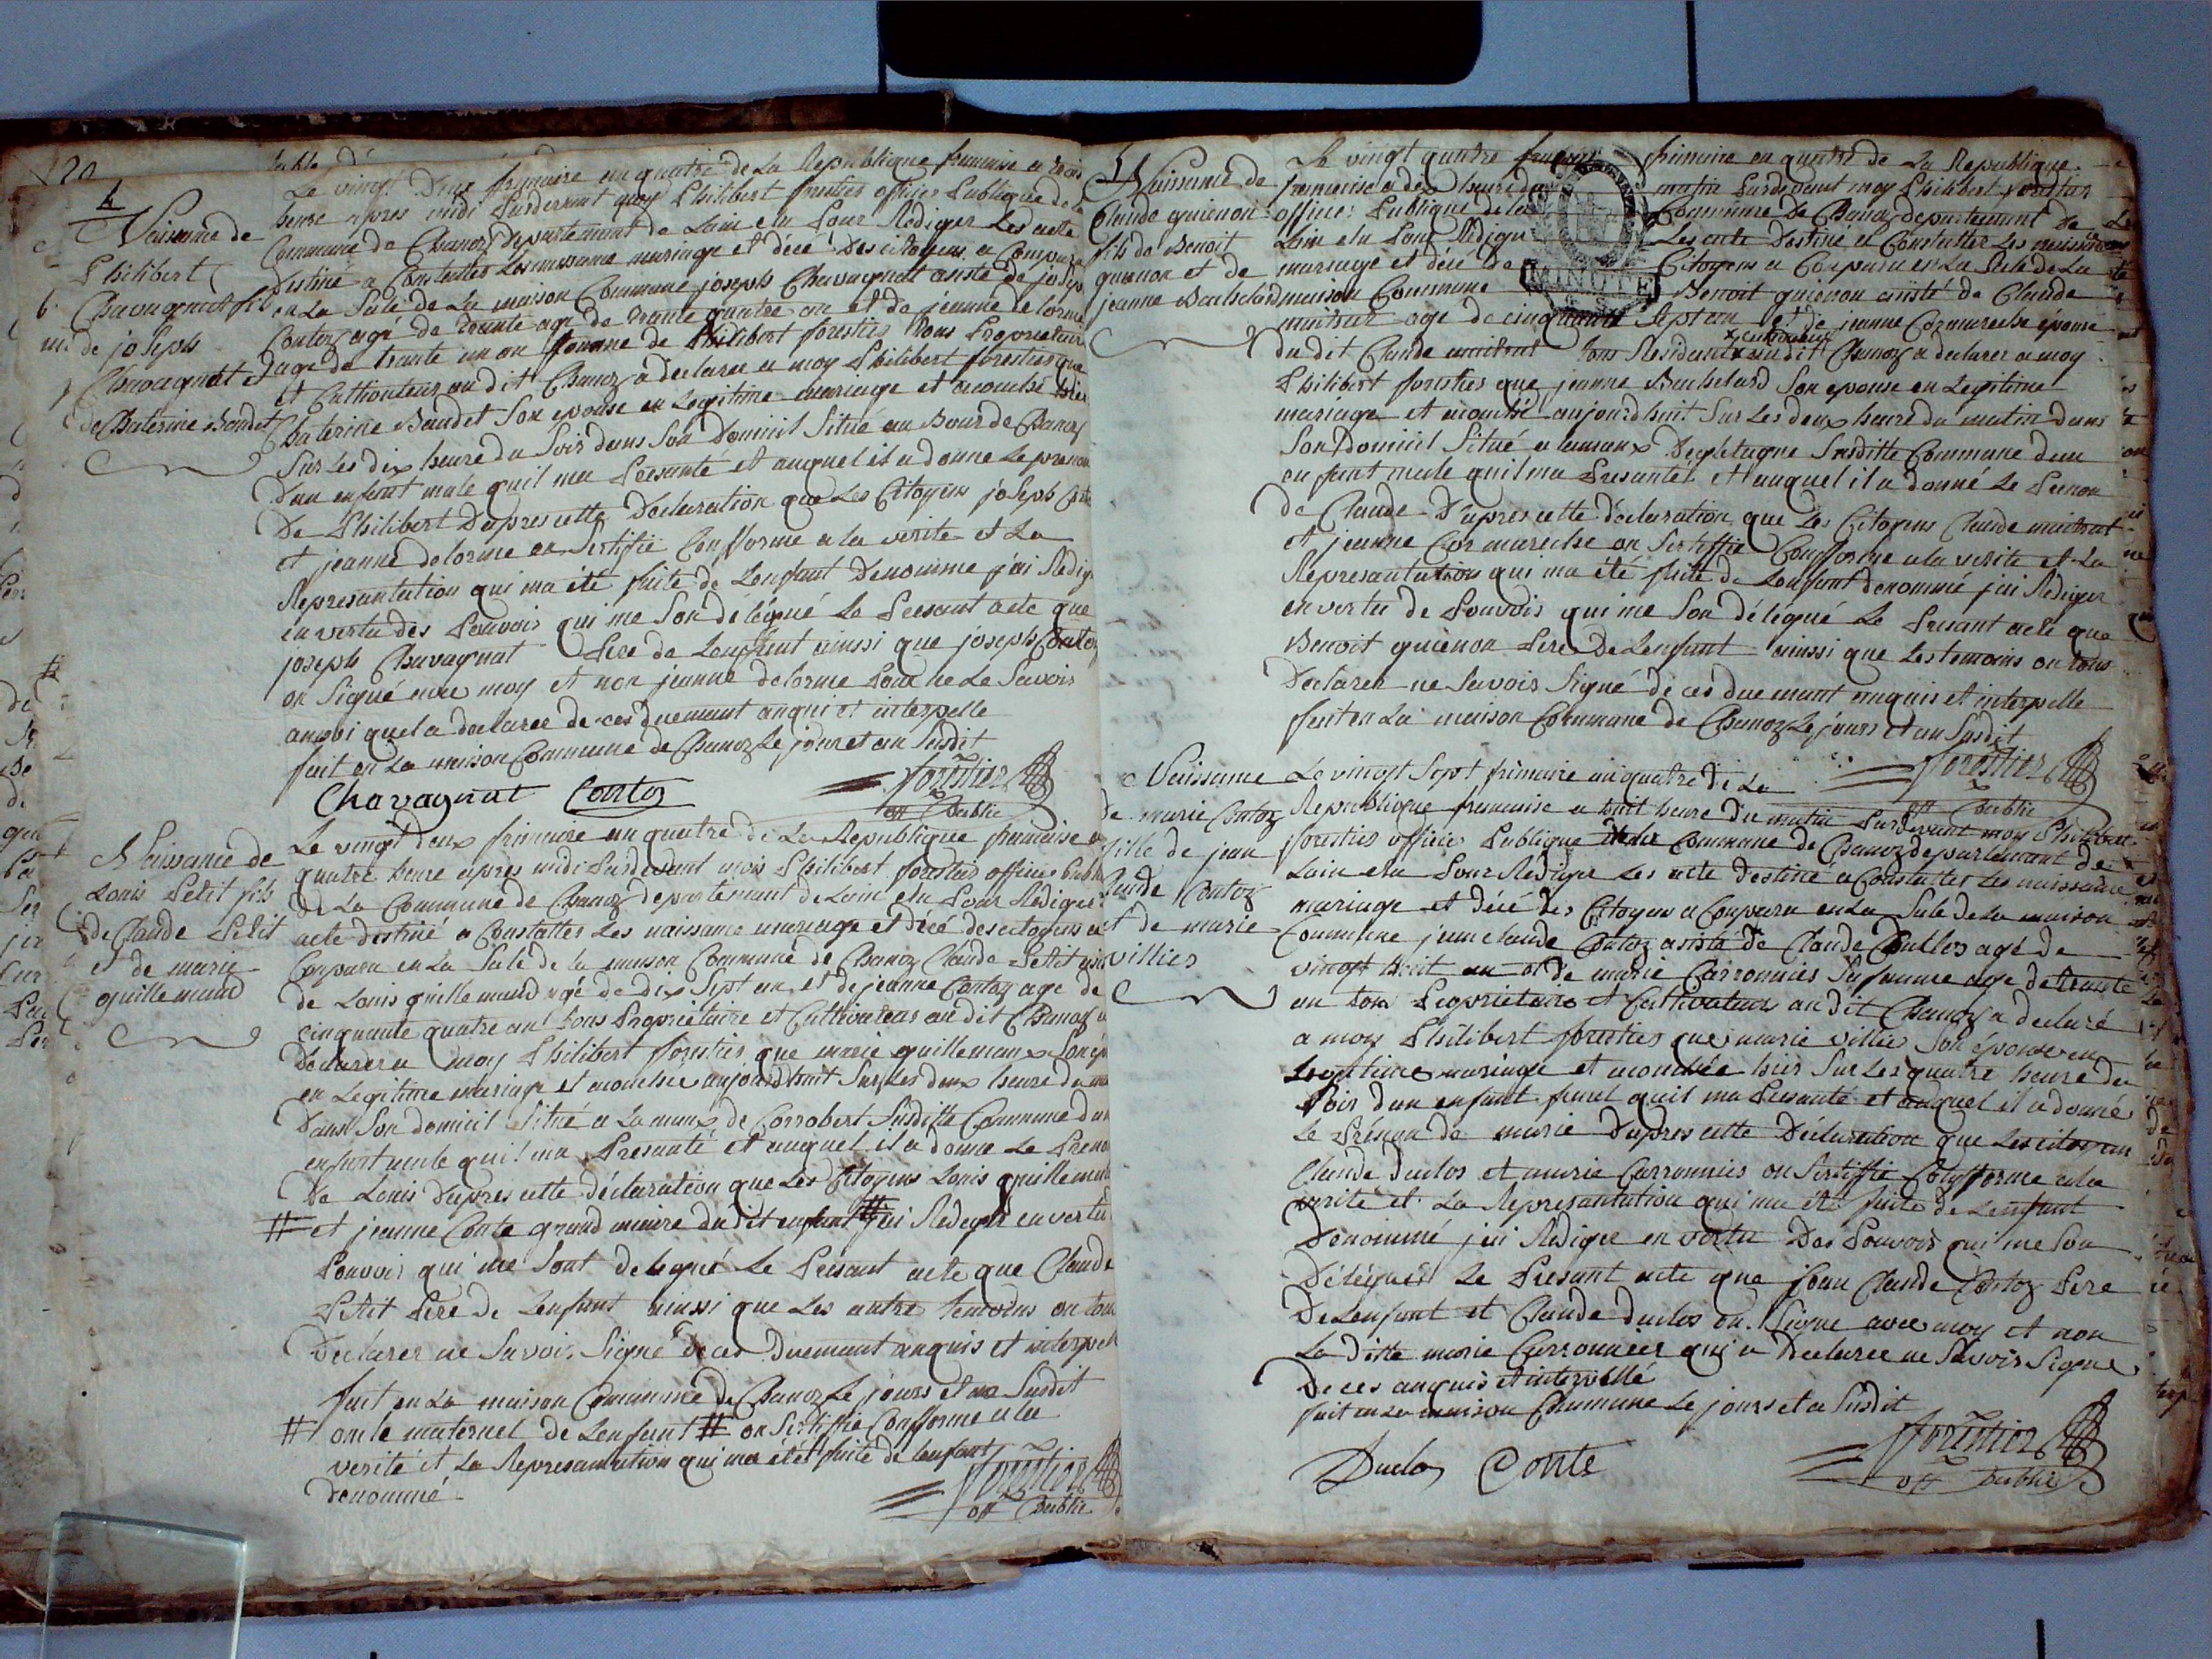 120
4
Naissance de
Philibert
Chavagnat fils
de joseph
Chavagnat et
de Chaterine Baudet
Le vingt Deux frimaire an quatre de La Republique francaise a trois
heure apres midi Pardevant moy Philibert forestier officier Publique de la
Commune de Chanoz Departement de Lain elu Pour Rédiger Les acte
Destiné a Constatter Les naissance mariage et décé Des citoyens a Comparu
en La Sale de La maison Commune joseph Chavagnat assisté de joseph
Contoz agé de trante agé de trante quatre an et de jeanne delorme
agé de trante un an femme de Philibert forestier tous Proprietaire
et Cultivateur au dit Chanoz a déclarer a moy Philibert forestier que
Chaterine Baudet Son epouse en Legitime mariage et acouché hier
Sur Les dix heure du Soir dans Son Domicil Situé au Bour de Chanoz
Dun enfant male quil ma Presanté et auquel il a donne Le prenom
De Philibert Dapres cette Declaration que Les Citoyens joseph Conto
et jeanne delorme on Sertifié Conforme a la verite et La
Representation qui ma été faite de Lenfant Denommé jai Redigé
en vertu des Pouvoir qui me Son délégué Le Presant acte que
joseph Chavagnat Pere de Lenfant ainssi que joseph Contoz
on Signé avec moy et non jeanne delorme Pour ne Le Savoir
ainssi quel a declaree de ces duemant anquis et interpelle
fait en La maison Commune de Chanoz Le jour et an Susdit
Chavagnat Contoz forestier
off Public
Naissance de
Louis Petit fils
de Claude Petit
et de marie
guillemaud
Le vingt deux frimaire an quatre de La Republique francaise a
quatre heure apres midi Pardevant moi Philibert forestier officier Public
de La Commune de Chanoz departemant de Lain elu Pour Rediger
acte destiné a Constatter Les naissance mariage et décé des citoyens a
Comparu en La Sale de la maison Commune de Chanoz Claude Petit
de Louis guillemaud agé de dix Sept an et de jeanne Contoz age de
cinquante quatre an tous Proprietaire et Cultivateur au dit Chanoz a
Declarer a moy Philibert forestier que marie guillemaux Son
en Legitime mariage et acouchée aujourdhuit Sur Les deux heure du
Dans Son domicil Situé a La manx de Corrobert Susditte Commune dun
enfant male quil ma Presanté et auquel il a donne Le Prenom
De Louis Dapres cette déclaration que Les Citoyens Louis guillemaud
# et jeanne Conte grand maire du dit enfant # jai Redigé en vertu
Pouvoir qui me Sont delegué Le Presant acte que Claude
Petit Pere de Lenfant ainssi que Les autre temoins on tous
Déclarer ne Savoir Signé de ces Duemant anquis et interpelé
fait en La maison Commune de Chanoz Le jours et an Susdit
# oncle maternel de Lenfant # on Sertiffié Confforme a La
verité et La Representation qui ma été faite de Lenfant
denommé
forestier
off Public
5
Naissance de
Claude guienon
fils de Benoit
guienon et de
jeanne Bachelard
Le vingt quatre frimaire an quatre de La Republique
francaise a dix heure du matin Pardevant moy Philibert forestier
officier Publique de la Commune De Chanoz departemant de
Lain elu Pour Rediger Les acte Destiné a Constatter Les naissance
mariage et décé de Citoyens a Comparu en La Sale de La
maison Commune Benoit guienon assisté de Claude
agé de cinquante Sept an et de jeanne Cormareche épouse
du dit Claude tous Residant au dit Chanoz a declarer a moy
Philibert forestier que jeanne Bachelard Son epouse en Legitime
mariage et acouché aujourdhuit Sur Les deux heure du matin dans
Son Domicil Situé a Susditte Commune dun
enfant male quil ma Presanté et auquel il a donné Le Prenon
de Claude Dapres cette déclaration que Les Citoyens Claude
et jeanne Cormareche on Sertiffié Confforme a la verite et La
Represantation qui ma été faite de Lenfant denommé jai Rediger
en vertu de Pouvoir qui me Son délégué Le Presant acte que
Benoit guienon Pere De Lenfant ainssi que Les temoins on tous
Declarer ne Savoir Signé de ces duemant anquis et interpelle
fait en La maison Commune de Chanoz Le jours et an Susdit
forestier
off Public
MINUTE
Naissance
de marie Contoz
fille de jean
Claude Contoz
et de marie
villier
Le vingt Sept frimaire an quatre de La
Republique francaise a huit heure du matin Pardevant moy Philibert
forestier officier Publique de la Commune de Chanoz departemant de
Lain elu Pour Rediger Les acte destiné a Constatter Les naissance
mariage et décé des Citoyens a Comparu en La Sale de La maison
Commune jean claude Contoz assisté de Claude Duclos agé de
vingt huit an et de marie Carronnier Sa femme age de trante
an tous Proprietaire et Cultivateur au dit Chanoz a declaré
a moy Philibert forestier que marie villier Son épouse en
Legitime mariage et acouchée hier Sur Les quatre heure du
Soir dun enfant femel quil ma Presanté et auquel il a donné
Le Prénon de marie Dapres cette Déclaration que Les citoyen
Claude duclos et marie Carronnier on Sertiffié Confforme a la
verité et La Represantation qui ma été faite de Lenfant
Denommé jai Rediger en vertu Des Pouvoir qui me Son
Délégué Le Presant acte que jean Claude Contoz Pere
De Lenfant et Claude duclos on Signe avec moy et non
La ditte marie Carronnier qui a Declaree ne Savoir Signe
De ces anquis et interpellé
fait en La maison Commune Le jours et a Susdit
Duclos Conte forestier
off Public